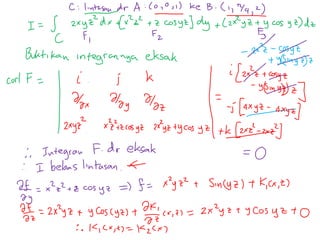 C: lintasan dr A: (0,0,1) ke B: (1, π/4, 2)
I = ∫_C 2xyz² dx + [x²z² + z cos yz] dy + (2x²yz + y cos yz) dz
F₁ F₂ F₃
Buktikan integrannya eksak
curl F = | i j k |
| ∂/∂x ∂/∂y ∂/∂z |
| 2xyz² x²z²+z cos yz 2x²yz+y cos yz |
- 2x²z - cos yz
+ y(sin yz) z
= i [2x²z + cos yz
- y(sin yz) z]
- j [4xyz - 4xyz]
+ k [2xz² - 2xz²]
= 0
∴ Integran F. dr eksak
∴ I bebas lintasan. ←
∂f/∂y = x²z² + z cos yz ⇒ f = x²yz² + Sin(yz) + K₁(x,z)
∂f/∂z = 2x²yz + y Cos(yz) + ∂K₁/∂z (x,z) = 2x²yz + y Cos yz + 0
∴ K₁(x,z) = K₂(x)